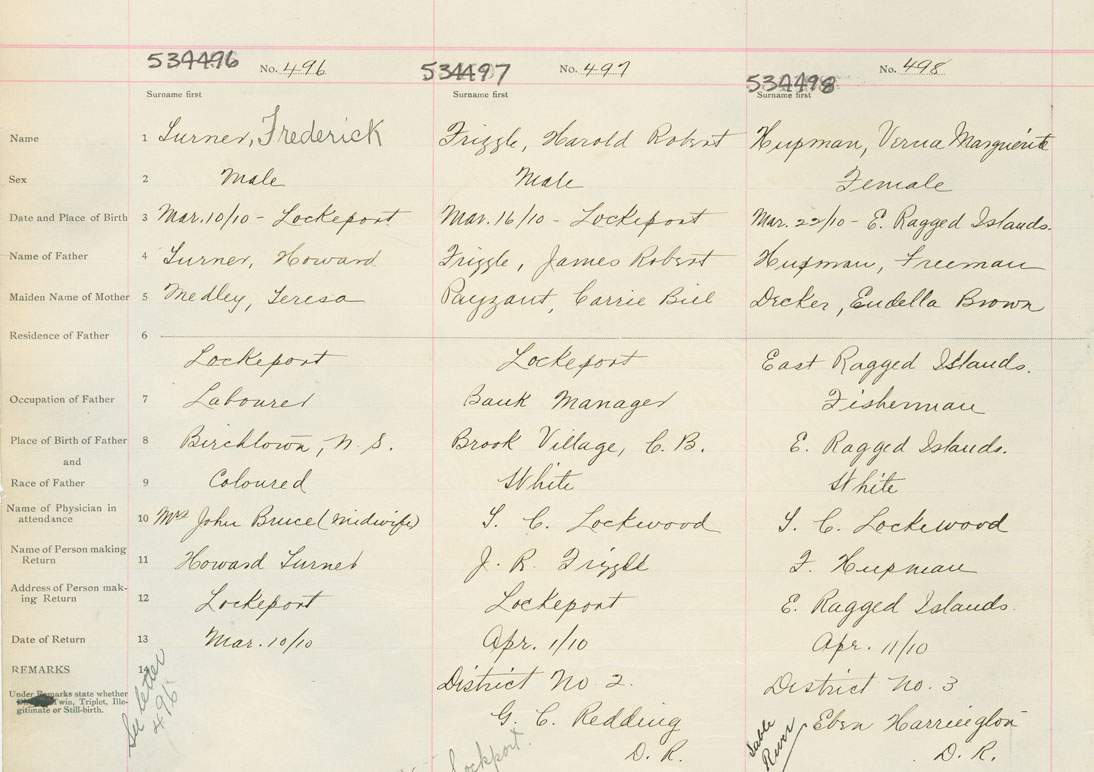 534496 No. 496 534497 No. 497 534498 No. 498
Surname first Surname first Surname first
Name 1 Turner, Frederick Frizzle, Harold Robert Hupman, Verna Marguerite
Sex 2 Male Male Female
Date and Place of Birth 3 Mar. 10/10 - Lockeport Mar. 16/10 - Lockeport Mar. 22/10 - E. Ragged Islands.
Name of Father 4 Turner, Howard Frizzle, James Robert Hupman, Freeman
Maiden Name of Mother 5 Medley, Teresa Payzant, Carrie Bill Decker, Eudella Brown
Residence of Father 6
Lockeport Lockeport East Ragged Islands.
Occupation of Father 7 Labourer Bank Manager Fisherman
Place of Birth of Father 8 Birchtown, N. S. Brook Village, C. B. E. Ragged Islands.
and
Race of Father 9 Coloured White White
Name of Physician in
attendance 10 Mrs John Bruce (Midwife) S. C. Lockwood S. C. Lockwood
Name of Person making
Return 11 Howard Turner J. R. Frizzle F. Hupman
Address of Person mak-
ing Return 12 Lockeport Lockeport E. Ragged Islands.
Date of Return 13 Mar. 10/10 Apr. 1/10 Apr. 11/10
REMARKS 14 District No. 2. District No. 3
Under Remarks state whether
Twin, Triplet, Ille-
gitimate or Still-birth.
See letter
496
G. C. Redding Eben Harrington
D. R. D. R.
Lockport.
Sable
River